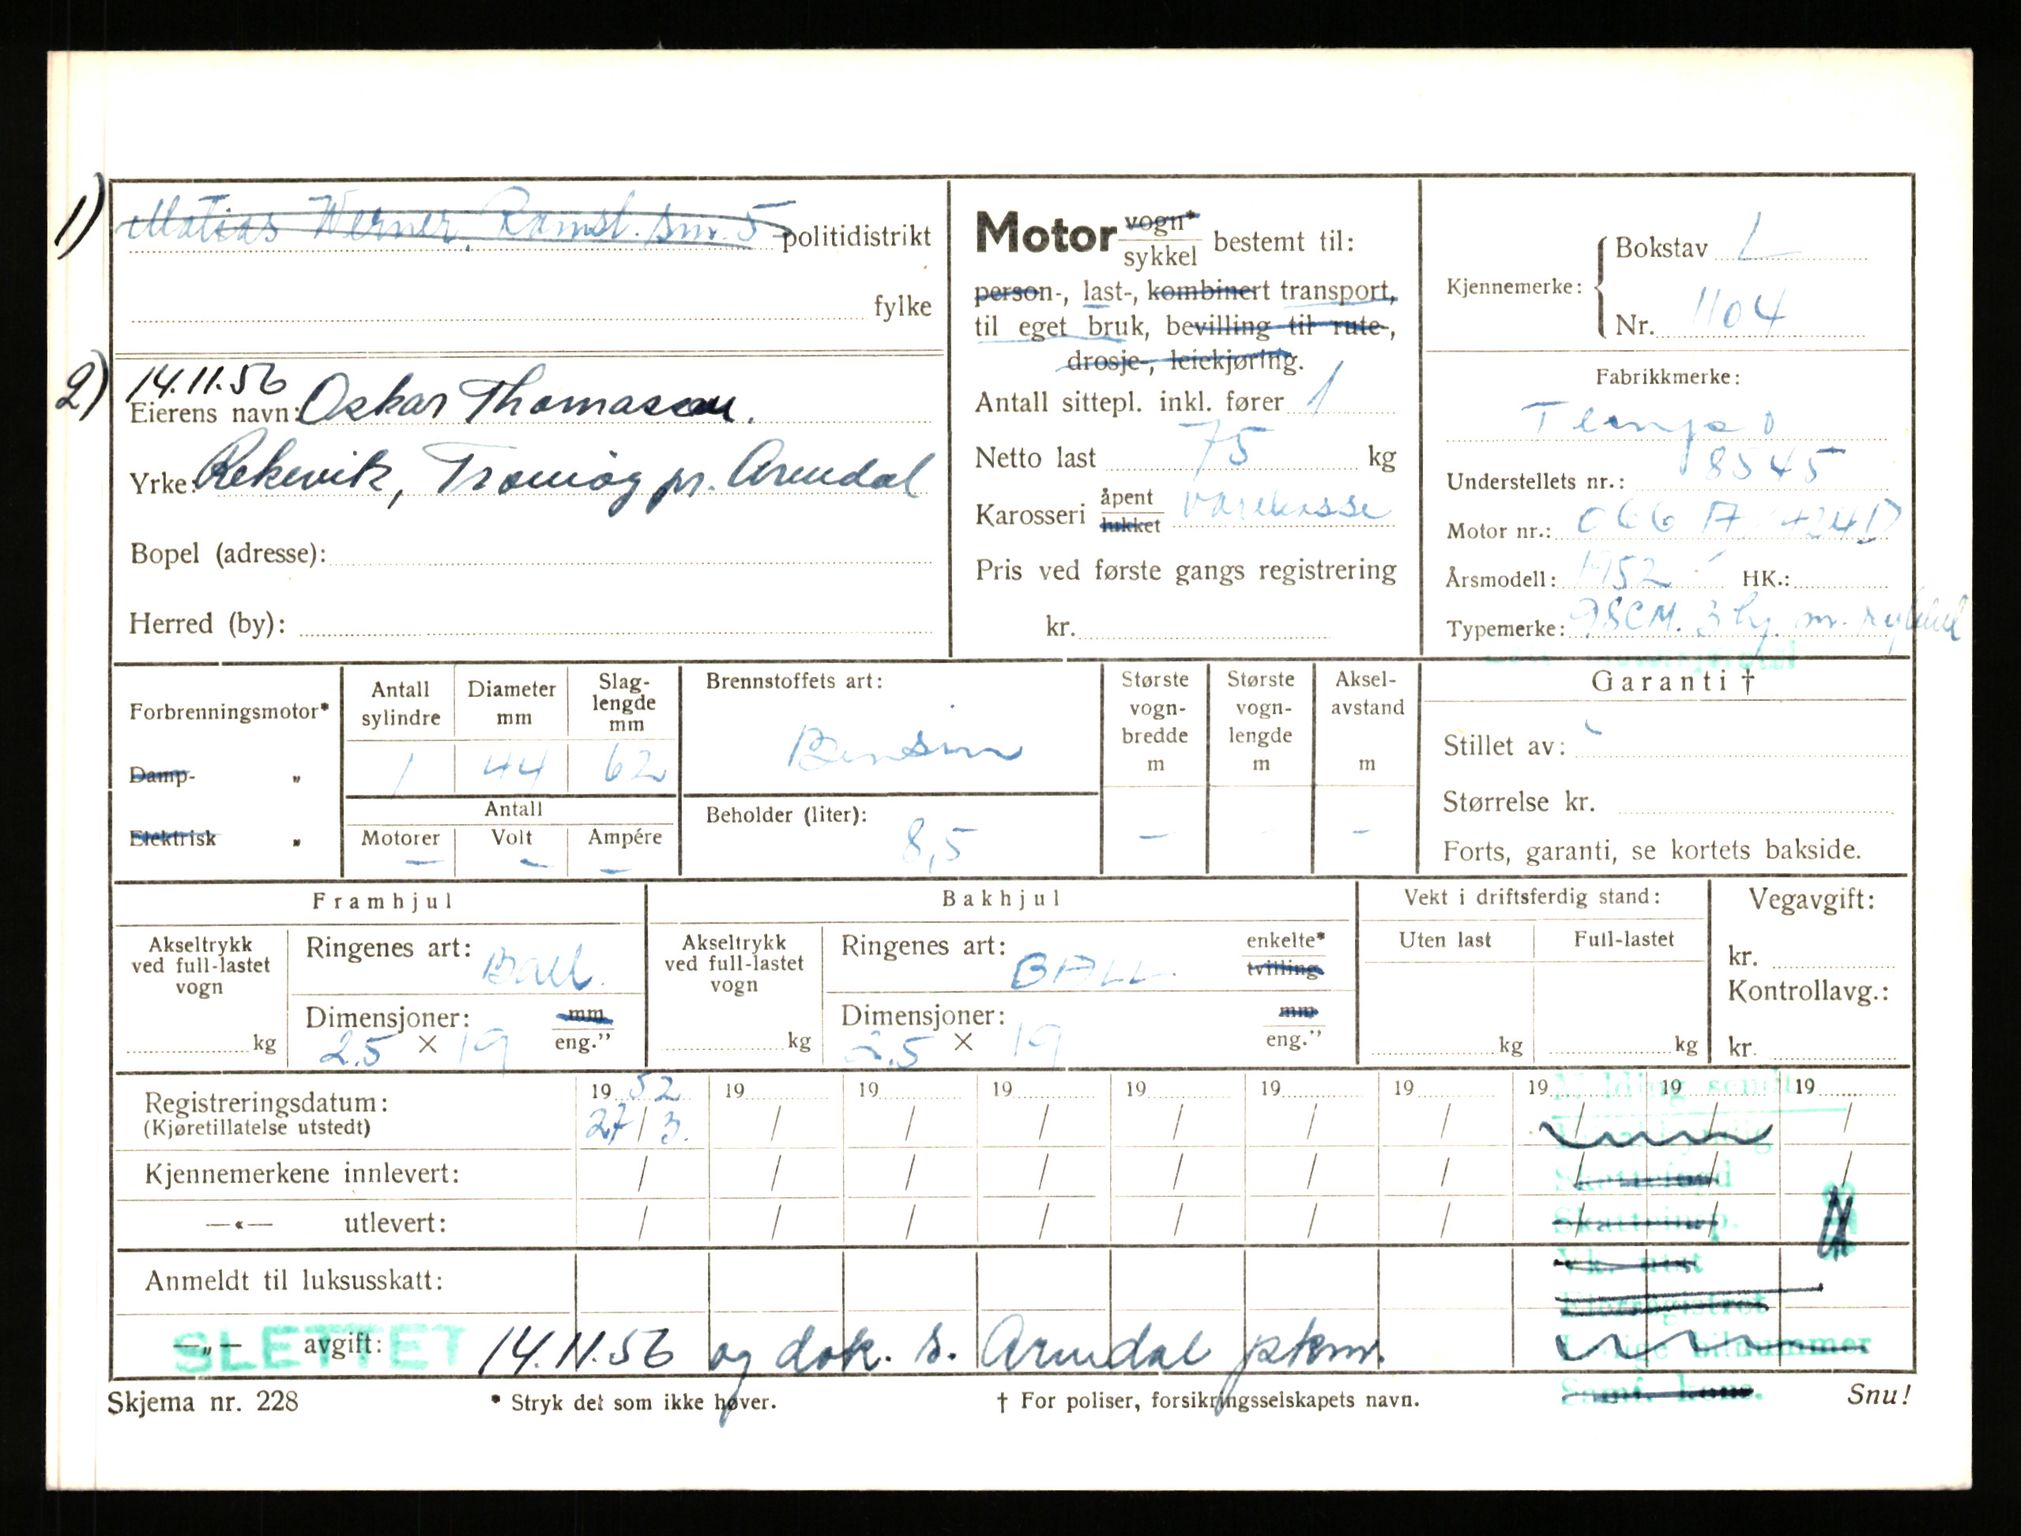 1) Matias Werner, Ramsl. sm. 5 politidistrikt
fylke
2) 14.11.56
Eierens navn: Oskar Thomassen.
Yrke: Rekevik, Tromøy pr. Arendal
Bopel (adresse):
Herred (by):
Motor vogn* sykkel bestemt til:
person-, last-, kombinert transport,
til eget bruk, bevilling til rute-,
drosje-, leiekjøring.
Antall sittepl. inkl. fører 1
Netto last 75 kg
Karosseri åpent lukket varekasse
Pris ved første gangs registrering
kr.
Kjennemerke: Bokstav L
Nr. 1104
Fabrikkmerke:
Tempo
Understellets nr.: 8545
Motor nr.:
Årsmodell: 1952 HK.:
Typemerke: 98CM. 3 hj. m.
Forbrenningsmotor*
Damp- „
Elektrisk „
Antall sylindre 1
Diameter mm 44
Slag-lengde mm 62
Antall
Motorer – Volt – Ampére –
Brennstoffets art:
Bensin
Beholder (liter):
8,5
Største vogn-bredde m –
Største vogn-lengde m
Aksel-avstand m –
Garanti †
Stillet av:
Størrelse kr.
Forts, garanti, se kortets bakside.
Framhjul
Akseltrykk ved full-lastet vogn kg
Ringenes art: Ball.
Dimensjoner: mm
2.5 × 19 eng."
Bakhjul
Akseltrykk ved full-lastet vogn kg
Ringenes art: BALL enkelte* tvilling
Dimensjoner: mm
2.5 × 19 eng."
Vekt i driftsferdig stand:
Uten last Full-lastet
kg kg
Vegavgift:
kr.
Kontrollavg.:
kr.
Registreringsdatum: 1952 19 19 19 19 19 19 19 19 19
(Kjøretillatelse utstedt) 27/3. / / / / / / / / /
Kjennemerkene innlevert: / / / / / / / / / /
—«— utlevert: / / / / / / / / / /
Anmeldt til luksusskatt:
—„— avgift:
SLETTET 14.11.56 og dok. s. Arendal pkm.
Melding sendt
Skattefogd
Skatteinsp.
Vk. utst
Eierregistret
Ledige bilnummer
Samf. kons.
Skjema nr. 228 * Stryk det som ikke høver. † For poliser, forsikringsselskapets navn. Snu!